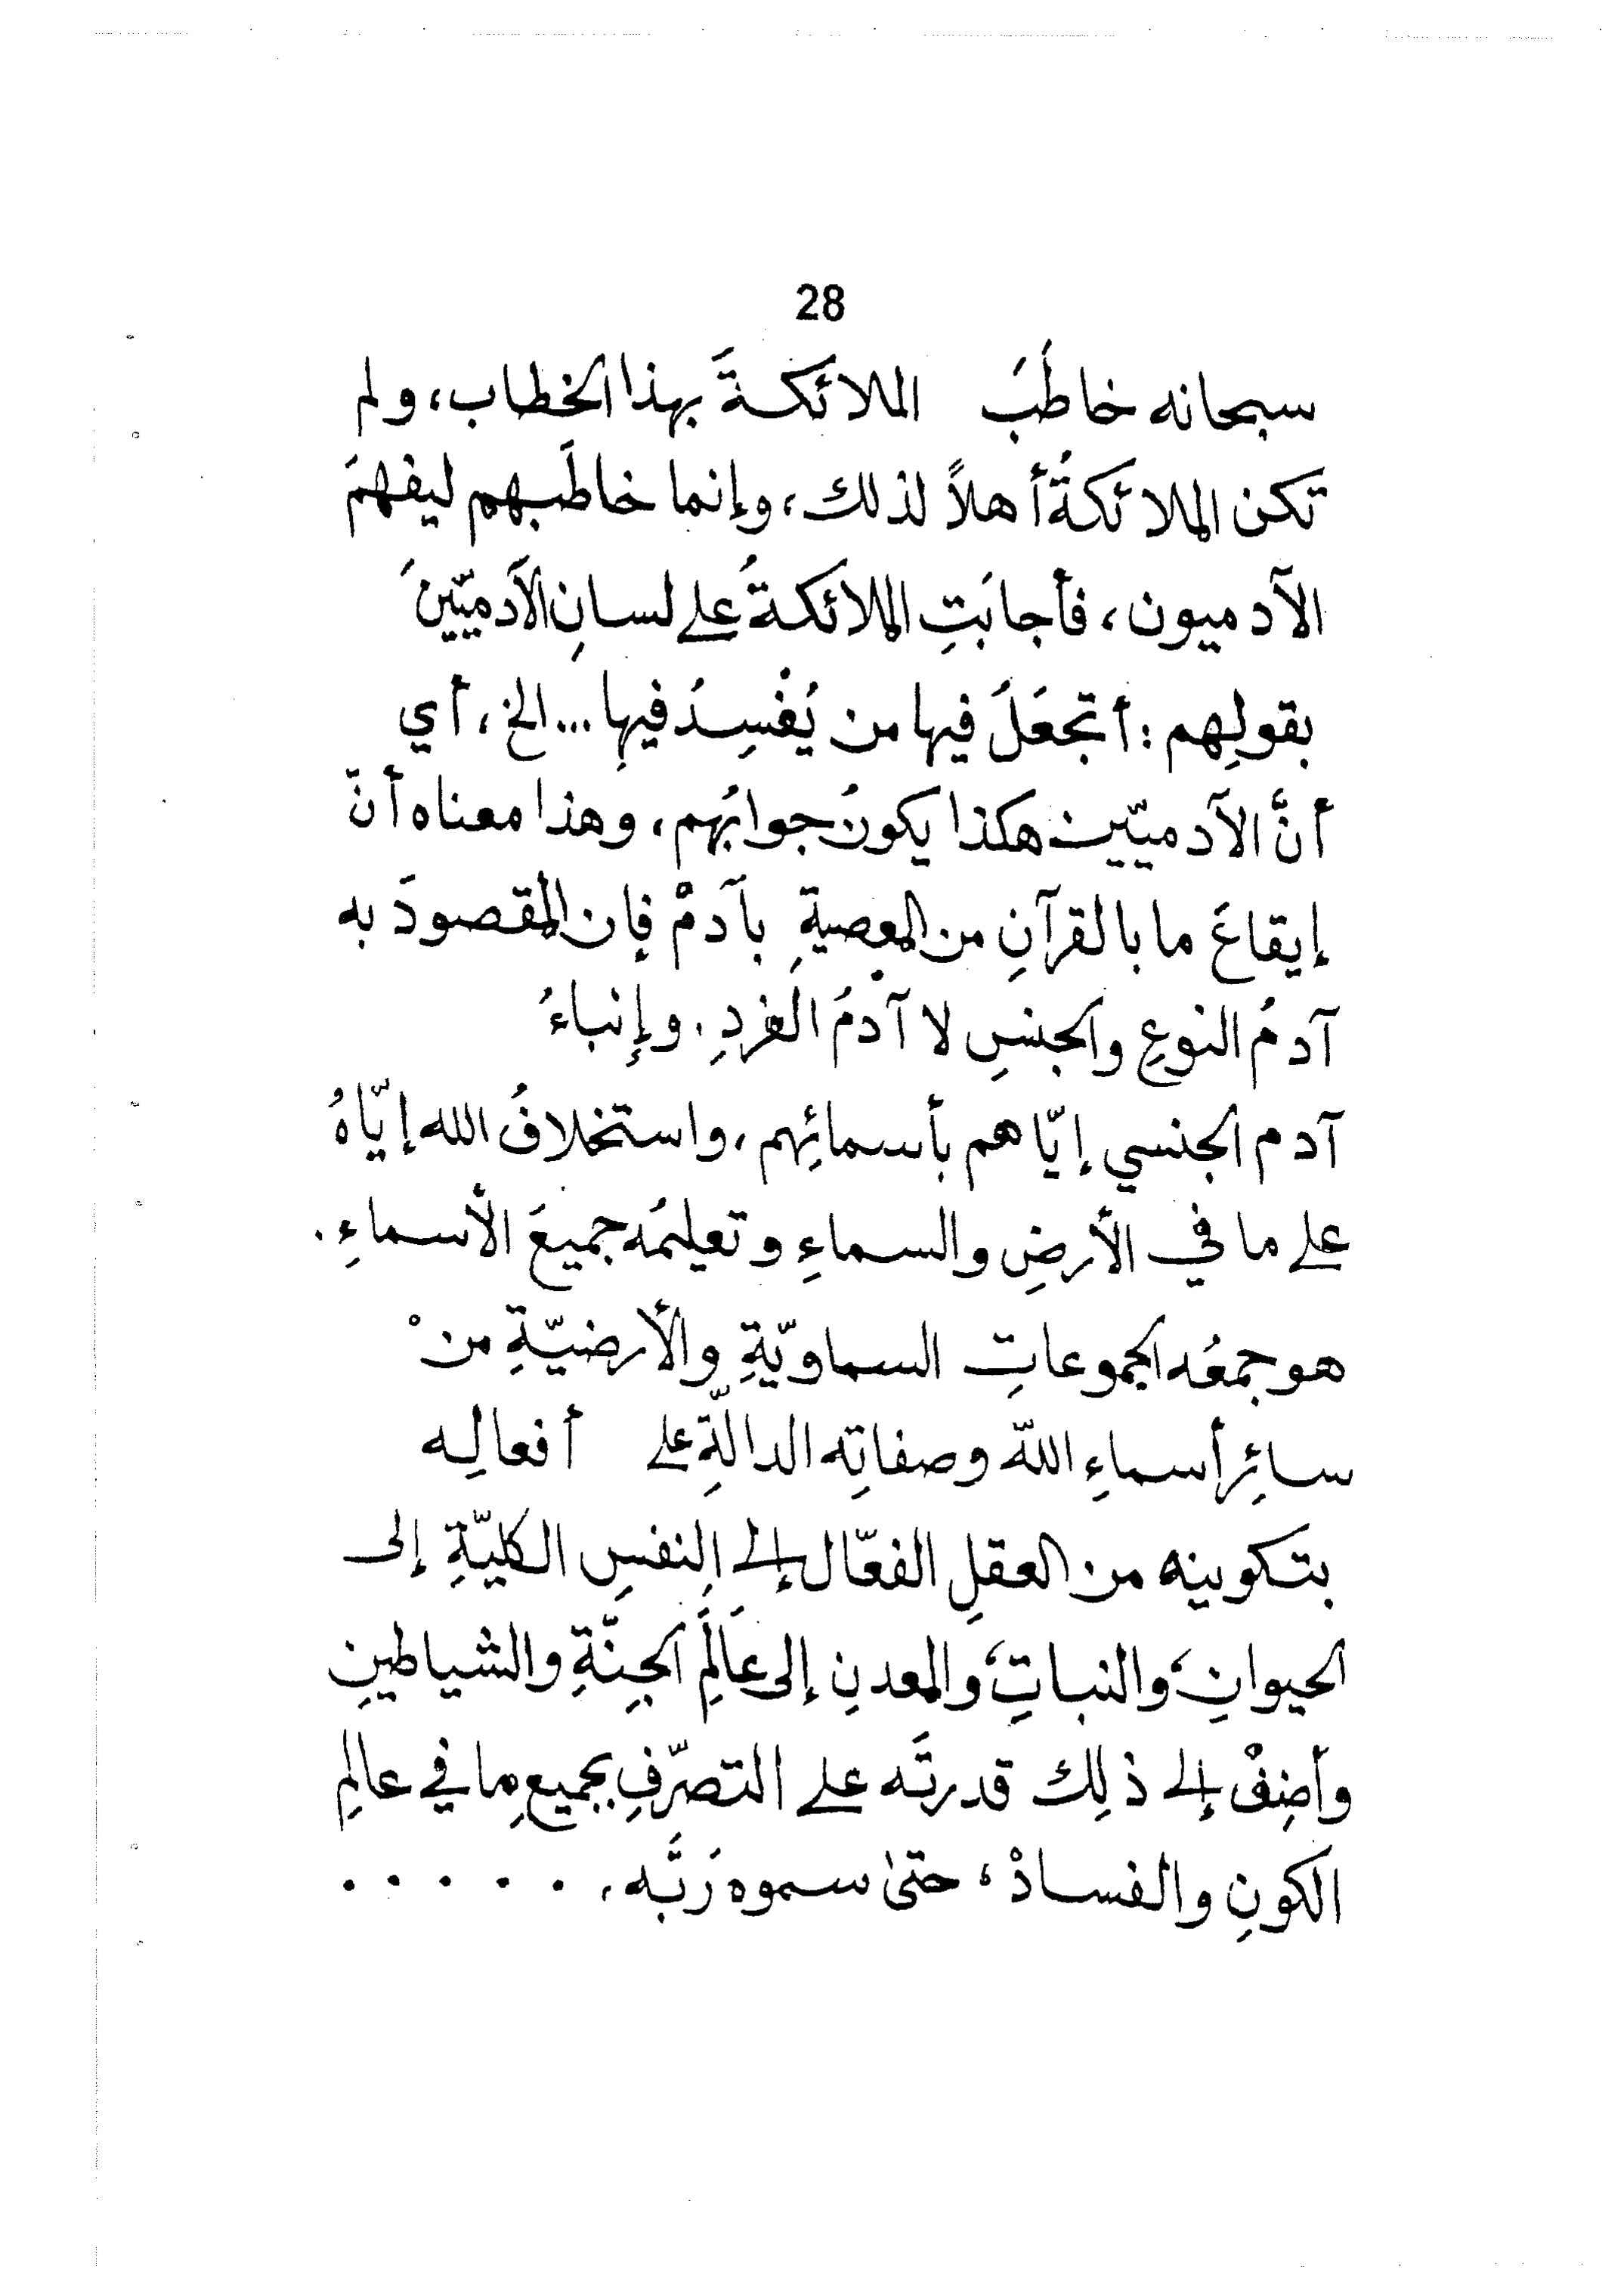 28
سبحانه خاطَبَ الملائكةَ بهذا الخطاب، ولم
تكن الملائكةُ أهلاً لذلك، وإنما خاطَبهم ليفهمَ
الآدميون، فأجابَتِ الملائكةُ على لسانِ الآدميّينَ
بقولِهم : أتجعَلُ فيها من يُفْسِدُ فيها ... الخ ، أي
أنَّ الآدميّين هكذا يكونُ جوابُهم، وهذا معناه أنّ
إيقاعَ ما بالقرآنِ من المعصيةِ بآدمْ فإن المقصودَ به
آدمُ النوعِ والجنسِ لا آدمُ الفردِ. وإنباءُ
آدم الجنسي إيّاهم بأسمائِهم، واستخلافُ الله إيّاهُ
على ما في الأرضِ والسماءِ وتعليمُه جميعَ الأسماءِ .
هو جمعُه المجموعاتِ السماويّةِ والأرضيّةِ منْ
سائِر أسماءِ اللّه وصفاتِه الدالّةِ على أفعالِه
بتكوينه من العقلِ الفعّال إلى النفسِ الكليّةِ إلى
الحيوانِ، والنباتِ، والمعدنِ إلى عَالَمِ الجِنّةِ والشياطينِ
وأضِفْ إلى ذلِك قدرتَه على التصرّفِ بجميعِ ما في عالمِ
الكونِ والفسادْ، حتىٰ سموه رَبَّه . . . . . .